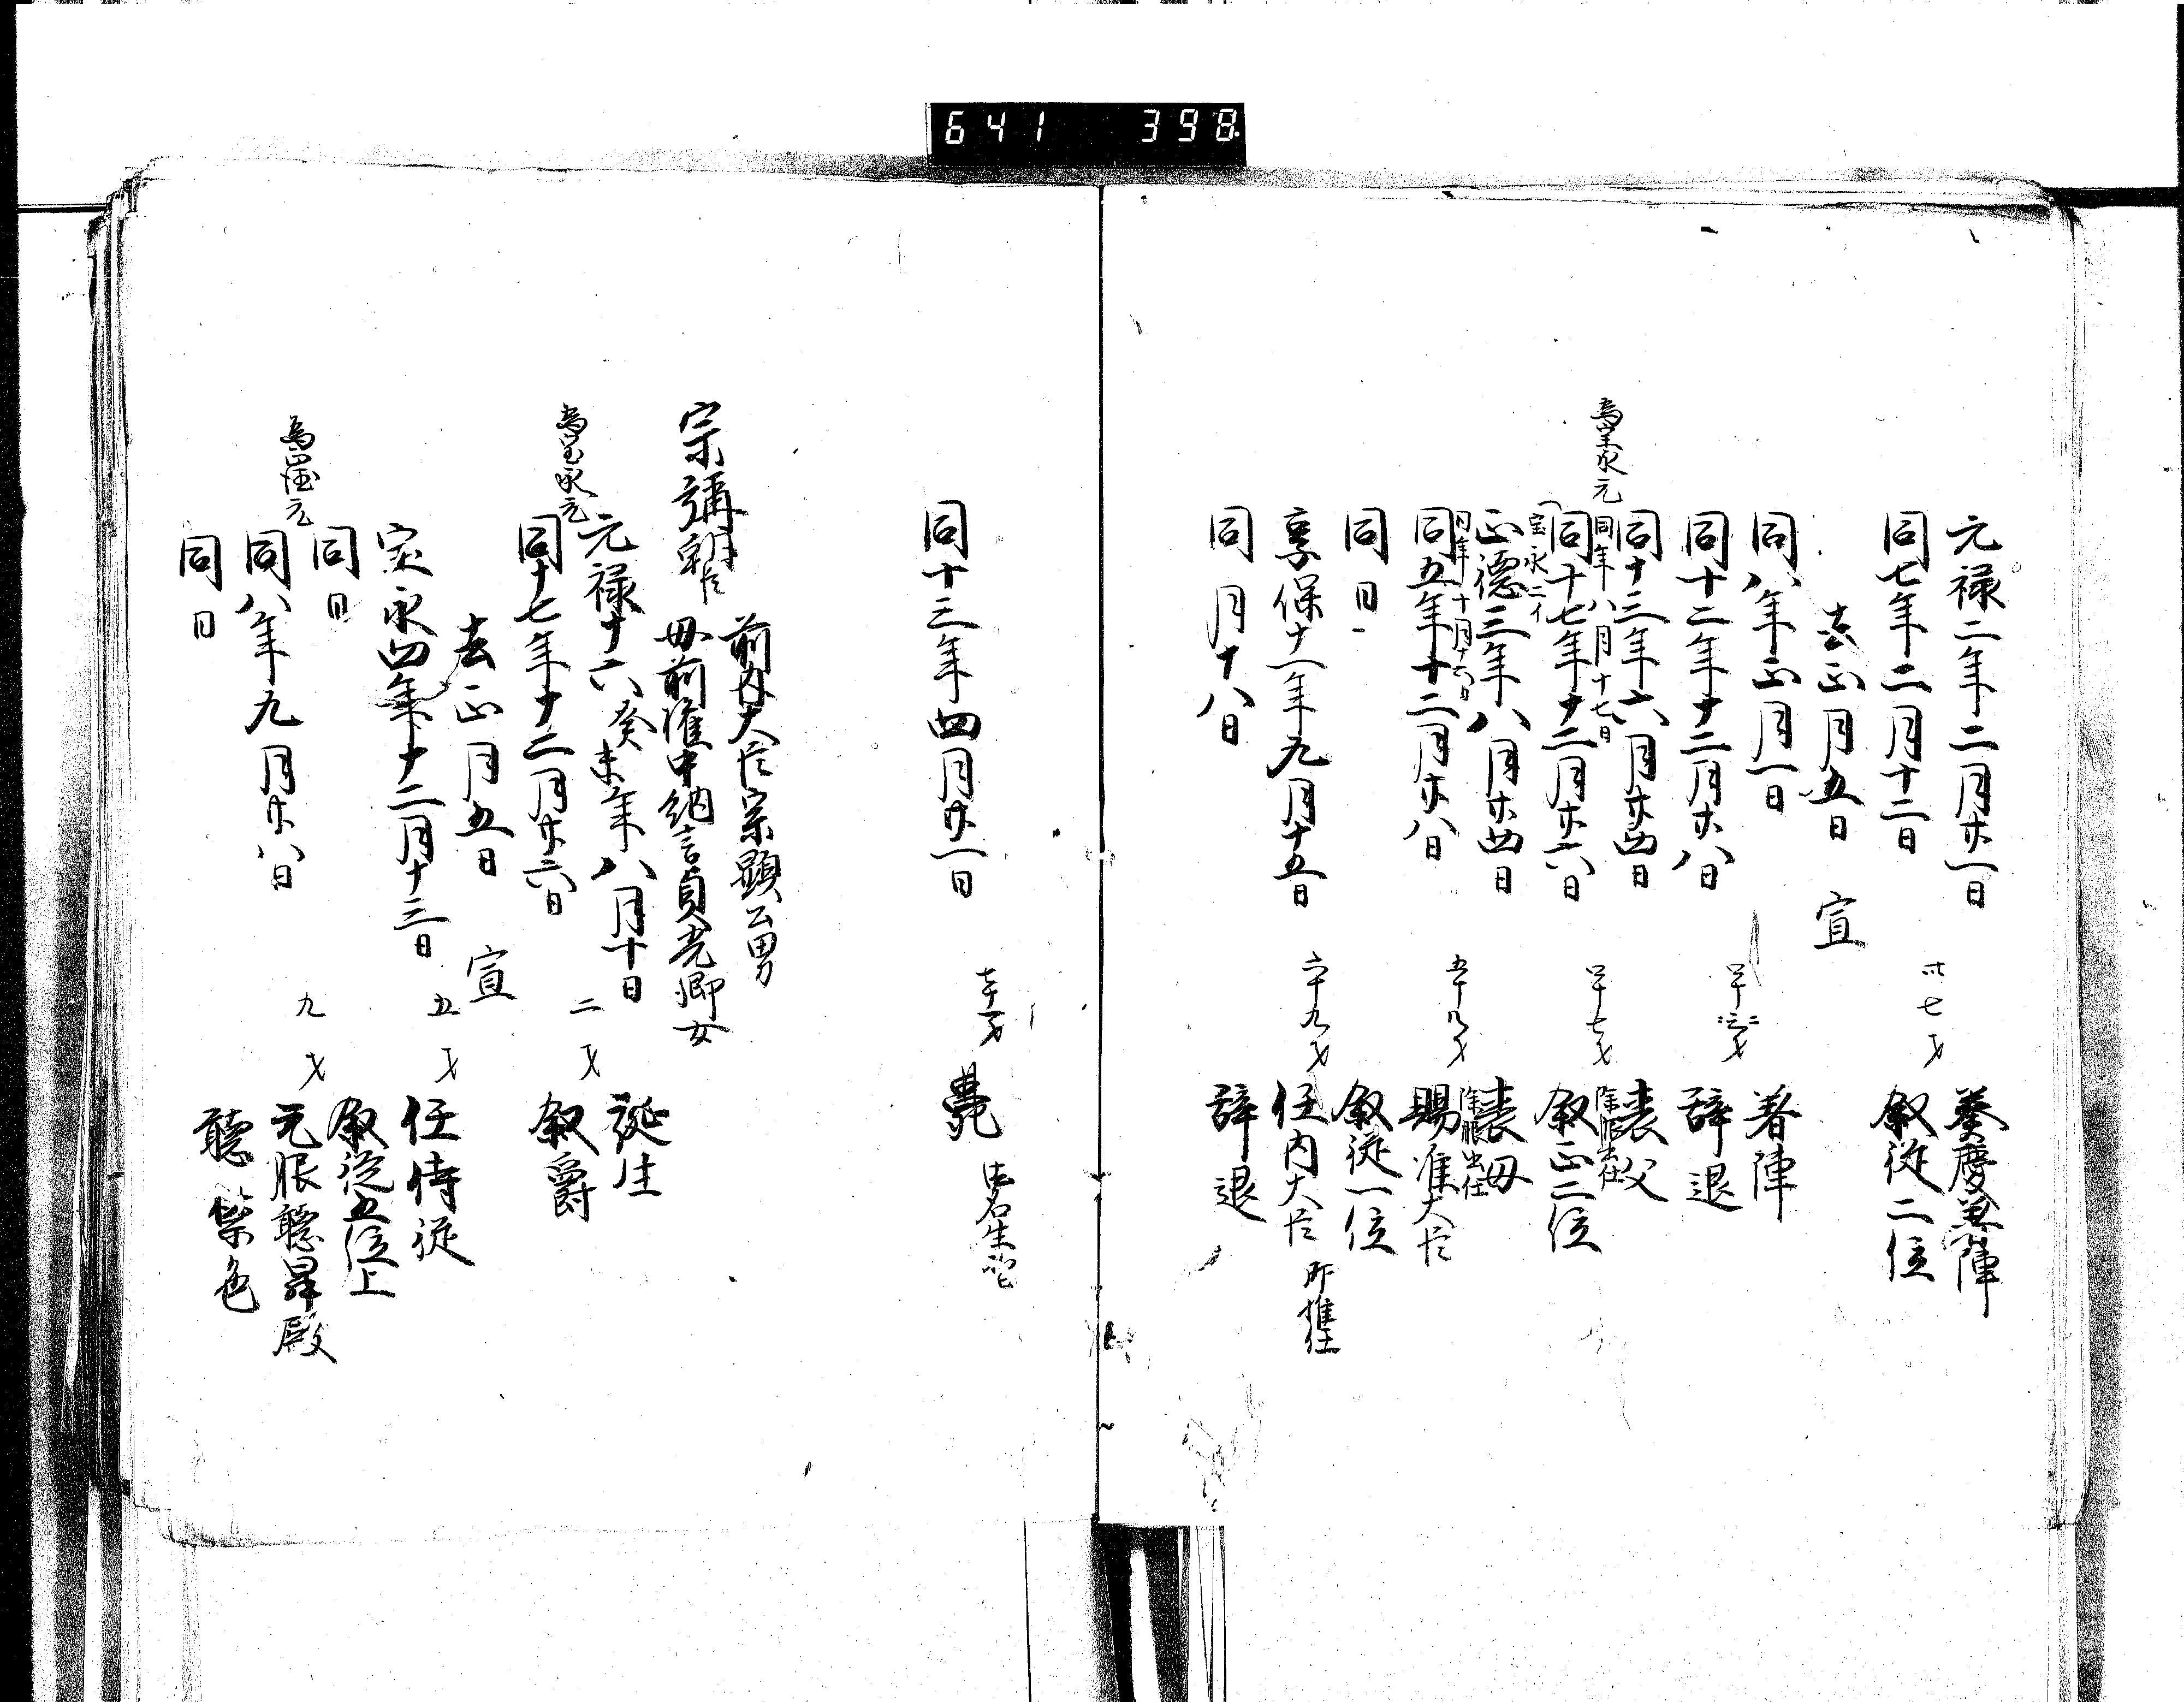 641 398
元禄二年二月廿一日 奏慶着陣
同七年二月十二日 卅七才 叙従二位
去正月五日 宣
同八年正月一日 着陣
同十二年十二月廿八日 辞退
為宝永元
同十三年六月廿四日 喪父
同年八月十七日 除服出仕
同十七年十二月廿六日 四十七才 叙正二位
宝永二イ
正徳三年八月廿四日 喪母
同年十月十六日 除服出仕
同五年十二月廿八日 五十八才 賜准大臣
同日 叙従一位
享保十一年九月十五日 六十九才 任内大臣
同月十八日 辞退
同十三年四月廿一日 七十一才 薨
宗彌朝臣 前内大臣宗顕公男
母前権中納言貞光卿女
元禄十六癸未年八月十日 誕生
為宝永元
同十七年十二月廿六日 二才 叙爵
去正月五日 宣
宝永四年十二月十三日 五才 任侍従
同日 叙従五位上
為正徳元
同八年九月廿八日 九才 元服聴昇殿
同日 聴禁色